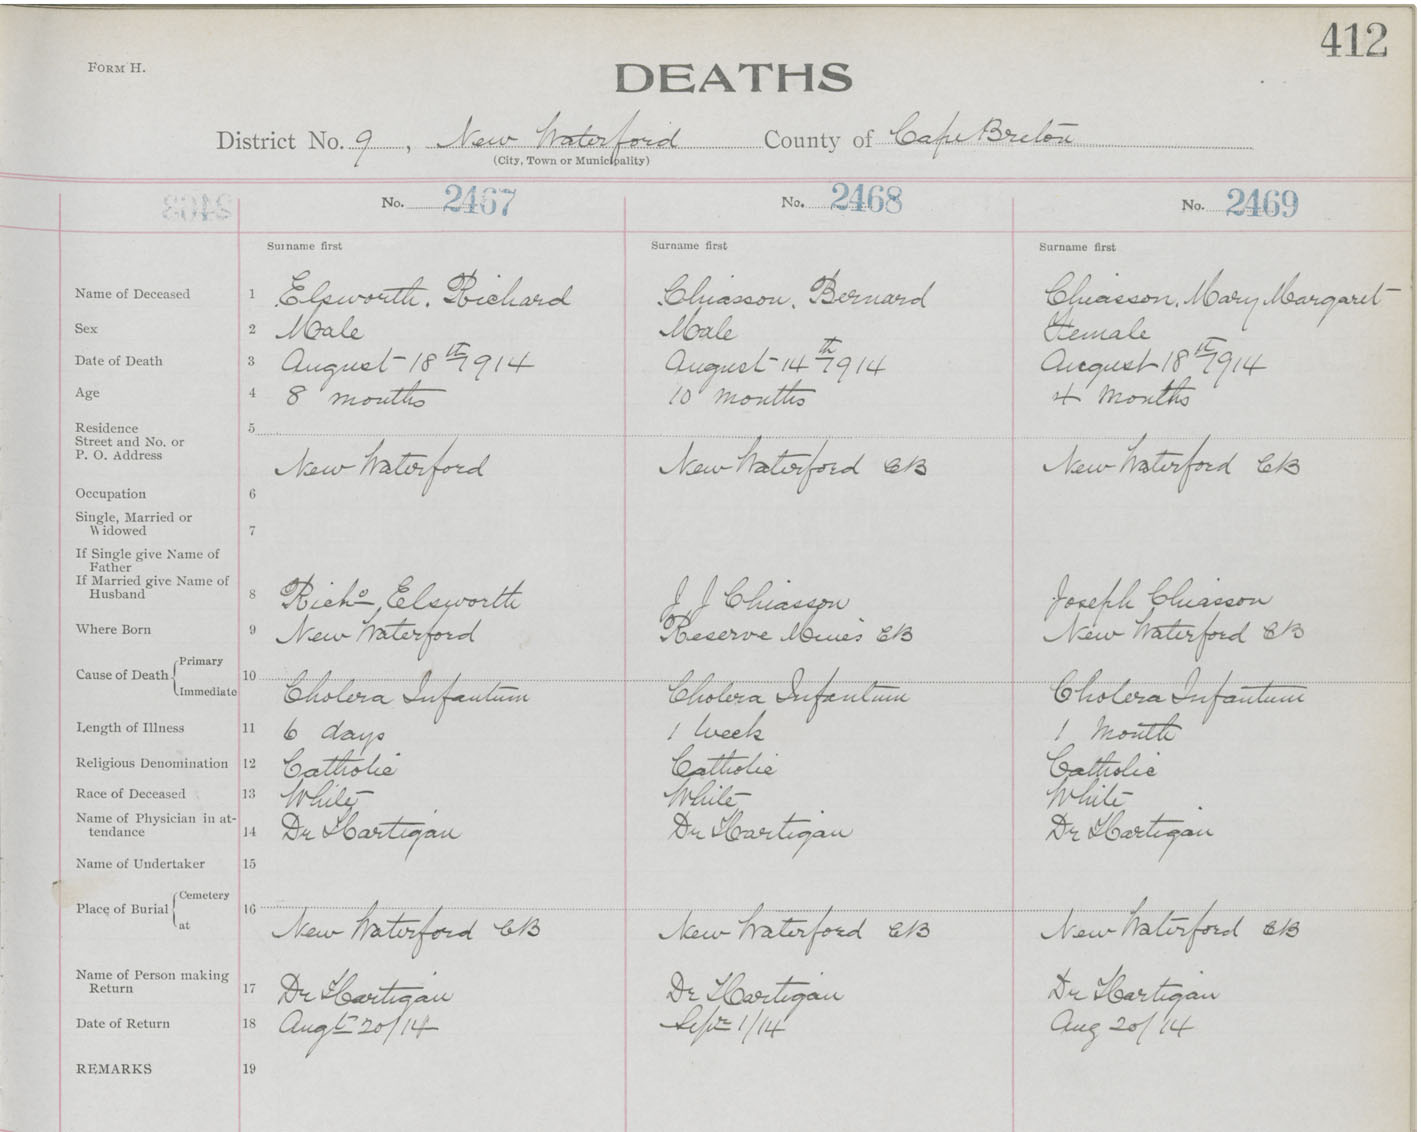 412
FORM H.
DEATHS
District No. 9, New Waterford County of Cape Breton
(City, Town or Municipality)
No. 2467 No. 2468 No. 2469
Surname first Surname first Surname first
Name of Deceased 1 Elsworth, Richard Chiasson, Bernard Chiasson, Mary Margaret
Sex 2 Male Male Female
Date of Death 3 August 18th 1914 August 14th 1914 August 18th 1914
Age 4 8 months 10 months 4 months
Residence 5
Street and No. or
P. O. Address New Waterford New Waterford CB New Waterford CB
Occupation 6
Single, Married or
Widowed 7
If Single give Name of
Father
If Married give Name of
Husband 8 Richd, Elsworth J J Chiasson Joseph Chiasson
Where Born 9 New Waterford Reserve Mines CB New Waterford CB
Cause of Death Primary 10
Immediate Cholera Infantum Cholera Infantum Cholera Infantum
Length of Illness 11 6 days 1 Week 1 Month
Religious Denomination 12 Catholic Catholic Catholic
Race of Deceased 13 White White White
Name of Physician in at-
tendance 14 Dr Hartigan Dr Hartigan Dr Hartigan
Name of Undertaker 15
Place of Burial Cemetery 16
at New Waterford CB New Waterford CB New Waterford CB
Name of Person making
Return 17 Dr Hartigan Dr Hartigan Dr Hartigan
Date of Return 18 Augt 20/14 Sepr 1/14 Aug 20/14
REMARKS 19